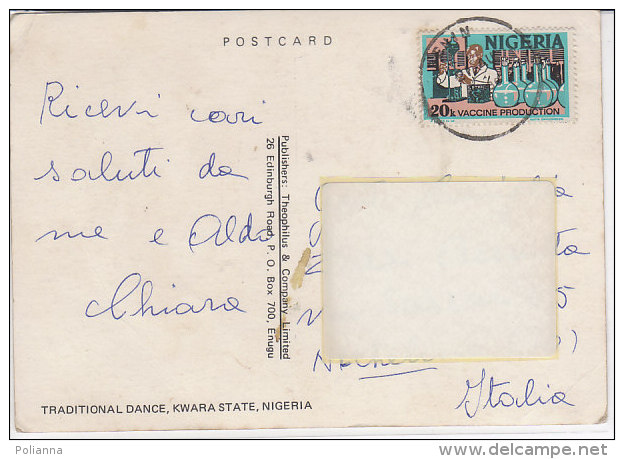 POSTCARD
NIGERIA
20k VACCINE PRODUCTION
Ricevi cari
saluti da
me e Aldo
Chiara
Publishers: Theophilus & Company Limited
26 Edinburgh Road, P. O. Box 700, Enugu
5
)
Italia
TRADITIONAL DANCE, KWARA STATE, NIGERIA
Polianna
www.delcampe.net